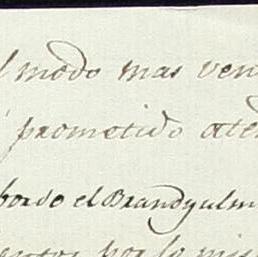 l modo mas ven
prometido aten
bordo el Brandy ulm
entos por lo mis